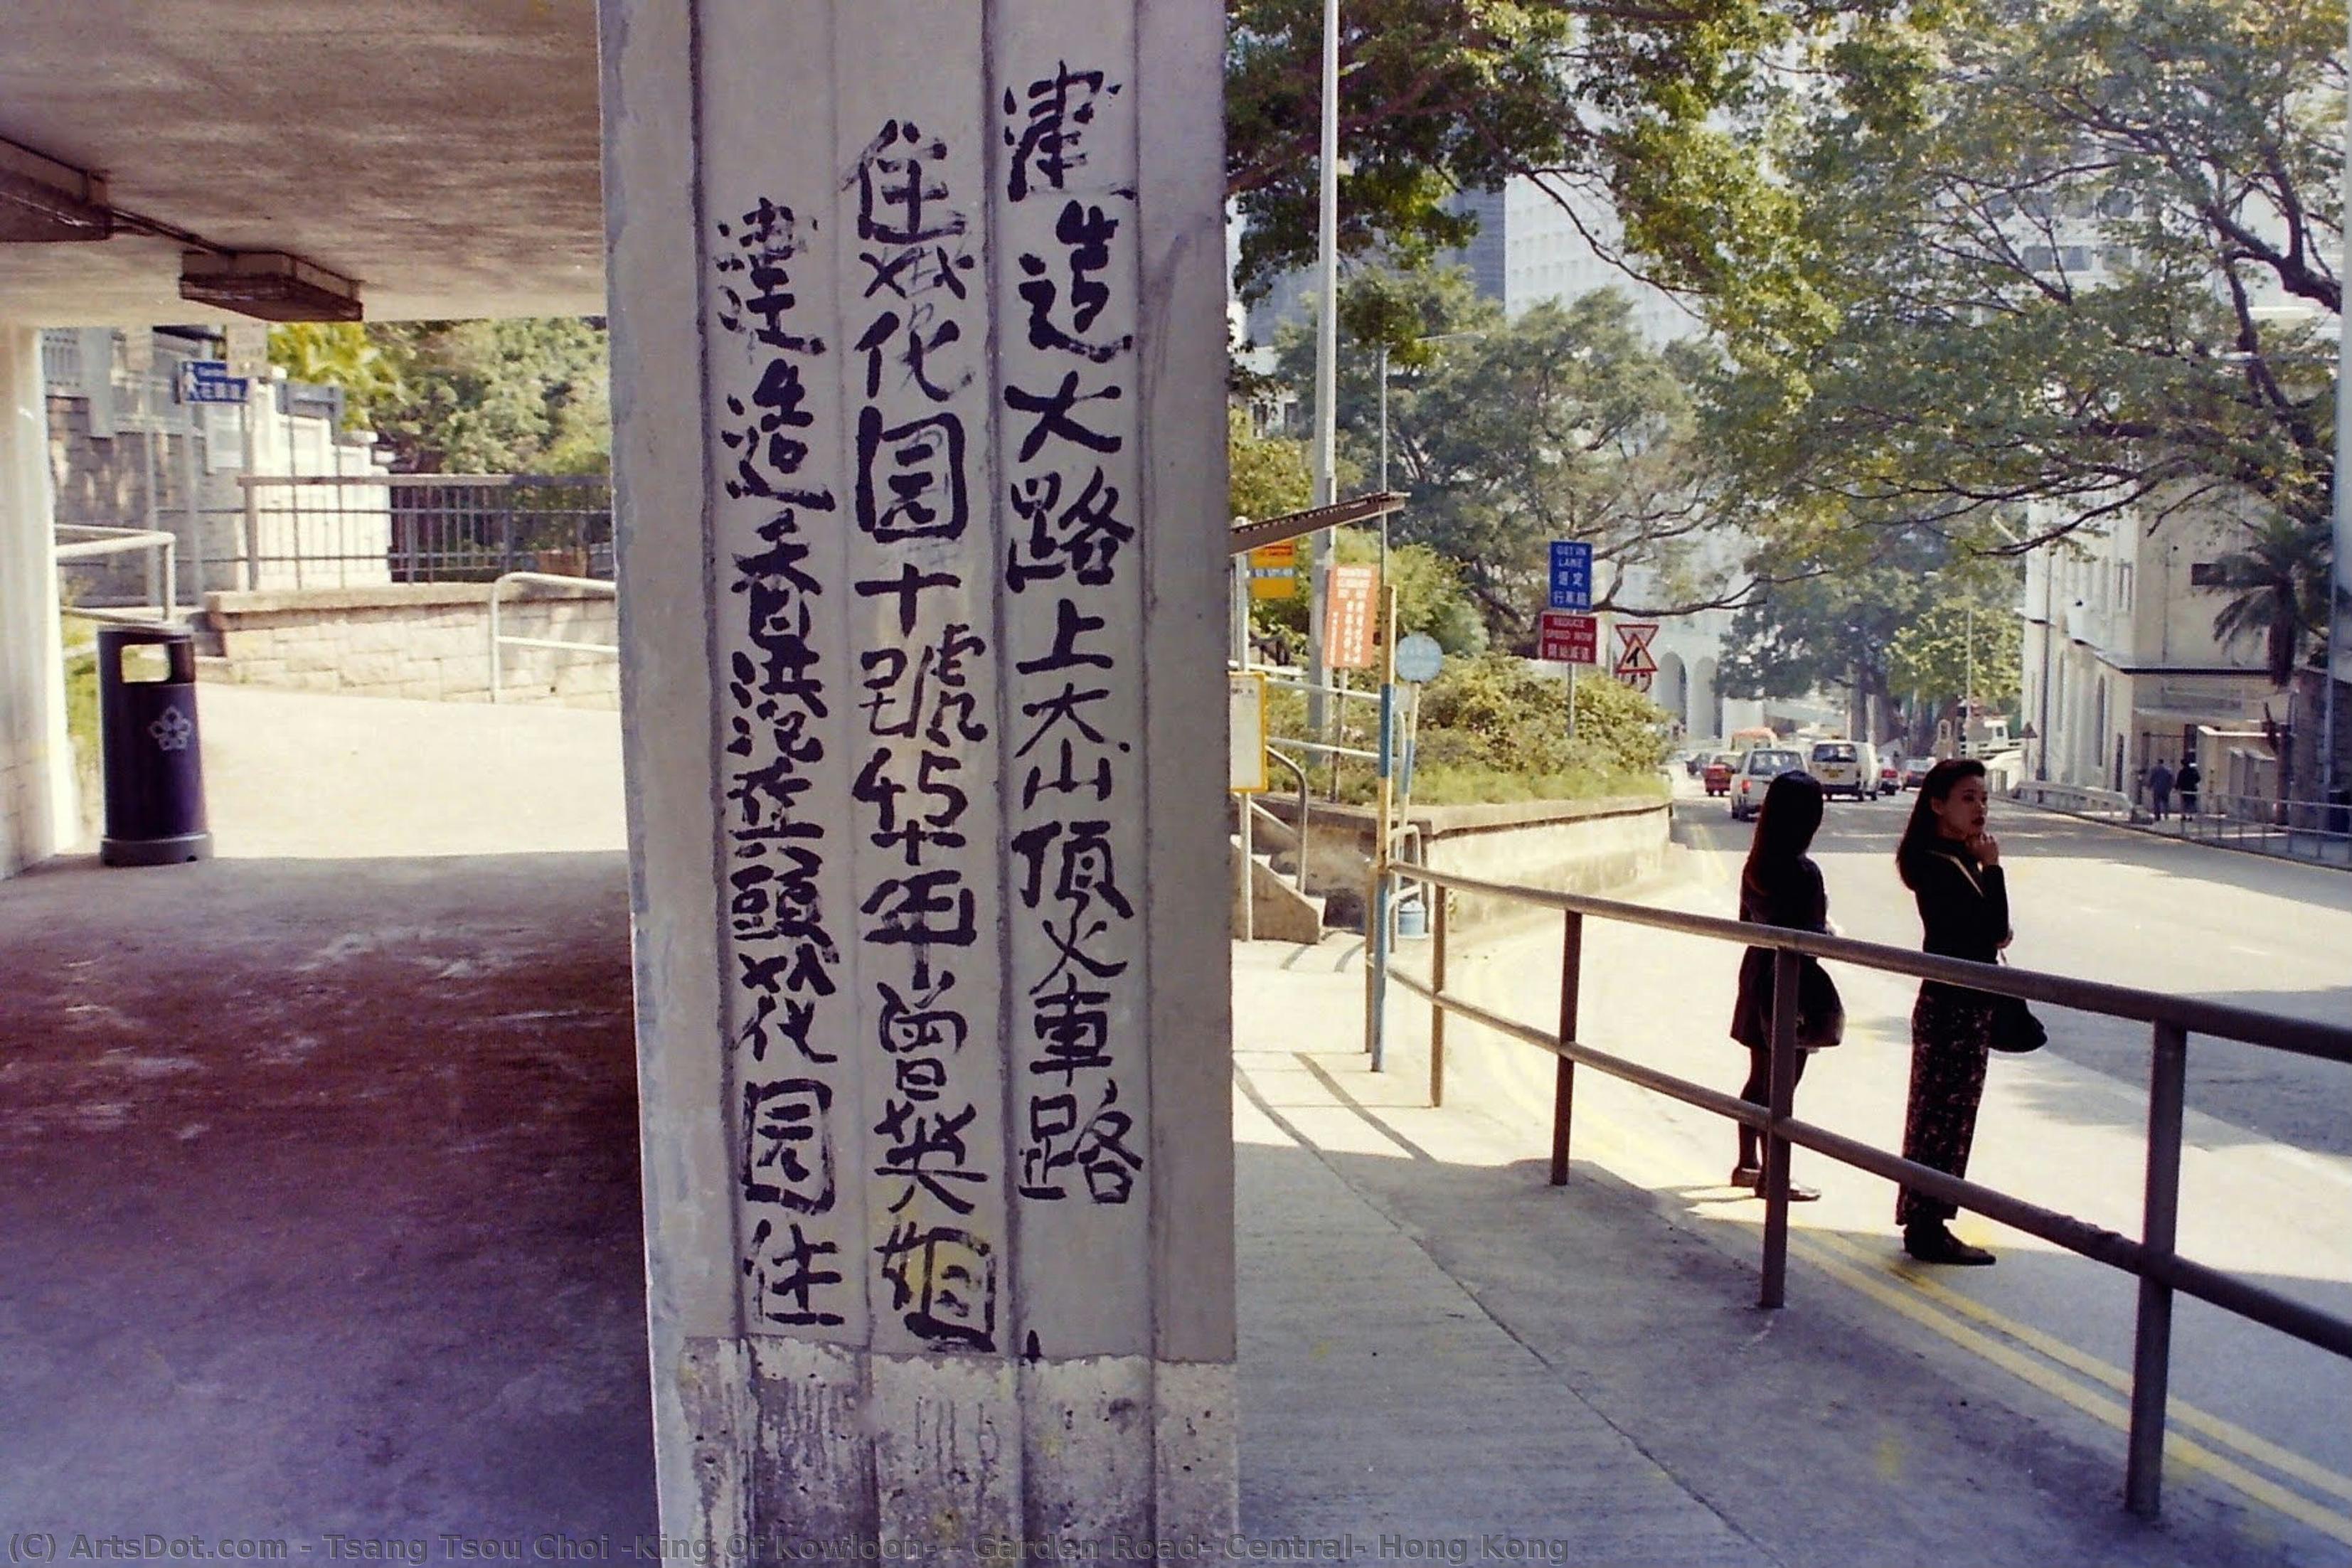 建造大路上大山頂火車路
住花園十號45年曾英姐
建造香港萡頭花園住
GET IN LANE
選定
行車線
REDUCE SPEED NOW
開始減速
(C) ArtsDot.com - Tsang Tsou Choi -King Of Kowloon- - Garden Road- Central- Hong Kong